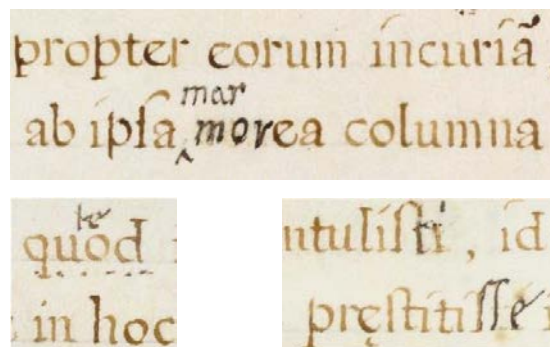 propter eorum incuriã
mar
ab ipſa morea columna
te
quod
in hoc
ntuliſti, id
pręſtitiſſe